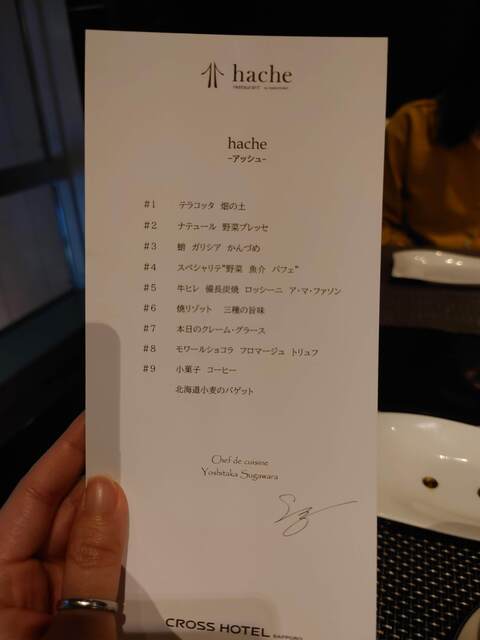 hache
restaurant
hache
-アッシュ-
#1 テラコッタ 畑の土
#2 ナチュール 野菜プレッセ
#3 鮪 ガリシア かんづめ
#4 スペシャリテ"野菜 魚介 パフェ"
#5 牛ヒレ 備長炭焼 ロッシーニ ア・マ・ファソン
#6 焼リゾット 三種の旨味
#7 本日のクレーム・グラース
#8 モワールショコラ フロマージュ トリュフ
#9 小菓子 コーヒー
北海道小麦のバゲット
Chef de cuisine
Yoshitaka Sugawara
CROSS HOTEL SAPPORO